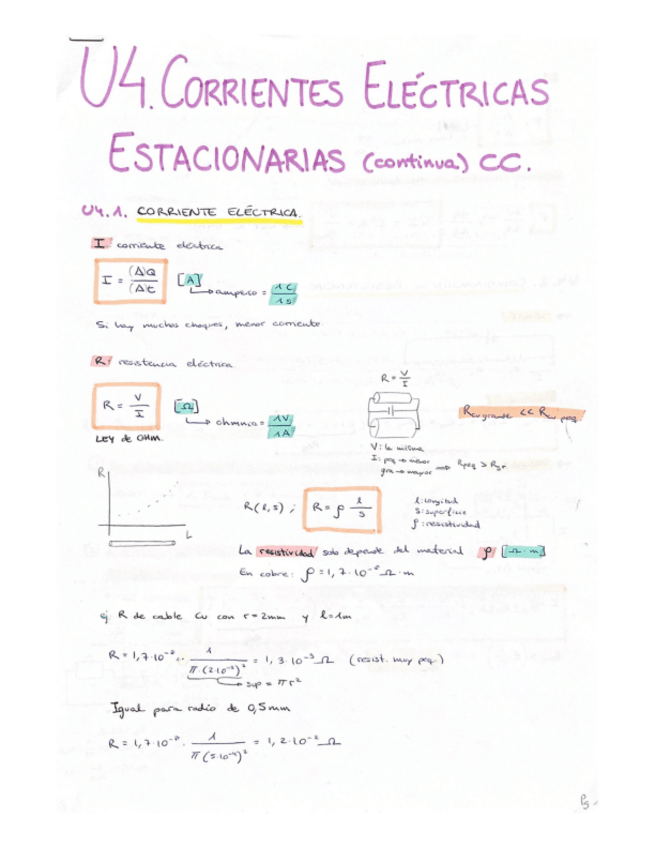 U4. CORRIENTES ELÉCTRICAS
ESTACIONARIAS (continua) CC.
U4.1. CORRIENTE ELÉCTRICA.
I corriente eléctrica
I = (Δ)Q / (Δ)t [A] → amperio = 1C / 1s
Si hay muchos choques, menor corriente.
R: resistencia eléctrica
R = V / I [Ω] → ohmnio = 1V / 1A
LEY de OHM.
R = V / I
V: la misma
I: peq → menor
gra → mayor ⇒ Rpeq > Rgr.
Rcu grande << Rcu peq.
R
L
R(l,s); R = ρ l / s
l: longitud
s: superficie
ρ: resistividad
La resistividad solo depende del material ρ [Ω·m]
En cobre: ρ = 1,7·10⁻⁸ Ω·m
ej R de cable Cu con r=2mm y l=1m
R = 1,7·10⁻⁸ · 1 / π·(2·10⁻³)² = 1,3·10⁻³ Ω (resist. muy peq.)
→ sup = πr²
Igual para radio de 0,5mm
R = 1,7·10⁻⁸ · 1 / π(5·10⁻⁴)² = 1,2·10⁻² Ω